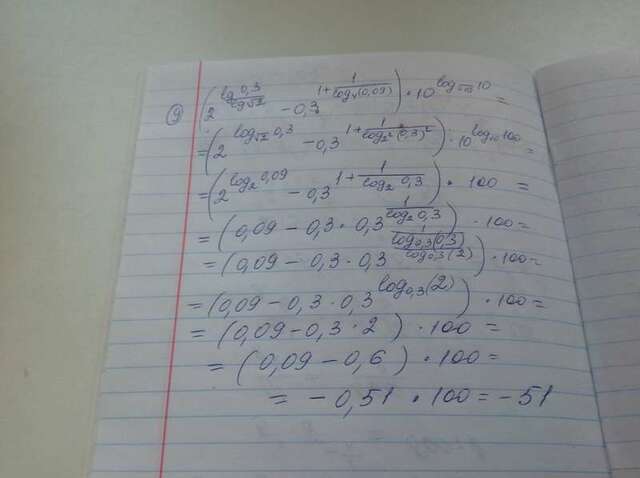 9) (2^(lg 0,3 / lg √2) - 0,3^(1 + 1/log₄(0,09))) · 10^(log_√10 10) =
= (2^(log_√2 0,3) - 0,3^(1 + 1/log_2²(0,3)²)) · 10^(log₁₀ 100) =
= (2^(log₂ 0,09) - 0,3^(1 + 1/log₂ 0,3)) · 100 =
= (0,09 - 0,3 · 0,3^(1/log₂ 0,3)) · 100 =
= (0,09 - 0,3 · 0,3^(1/(log_0,3(0,3)/log_0,3(2)))) · 100 =
= (0,09 - 0,3 · 0,3^(log_0,3(2))) · 100 =
= (0,09 - 0,3 · 2) · 100 =
= (0,09 - 0,6) · 100 =
= - 0,51 · 100 = - 51